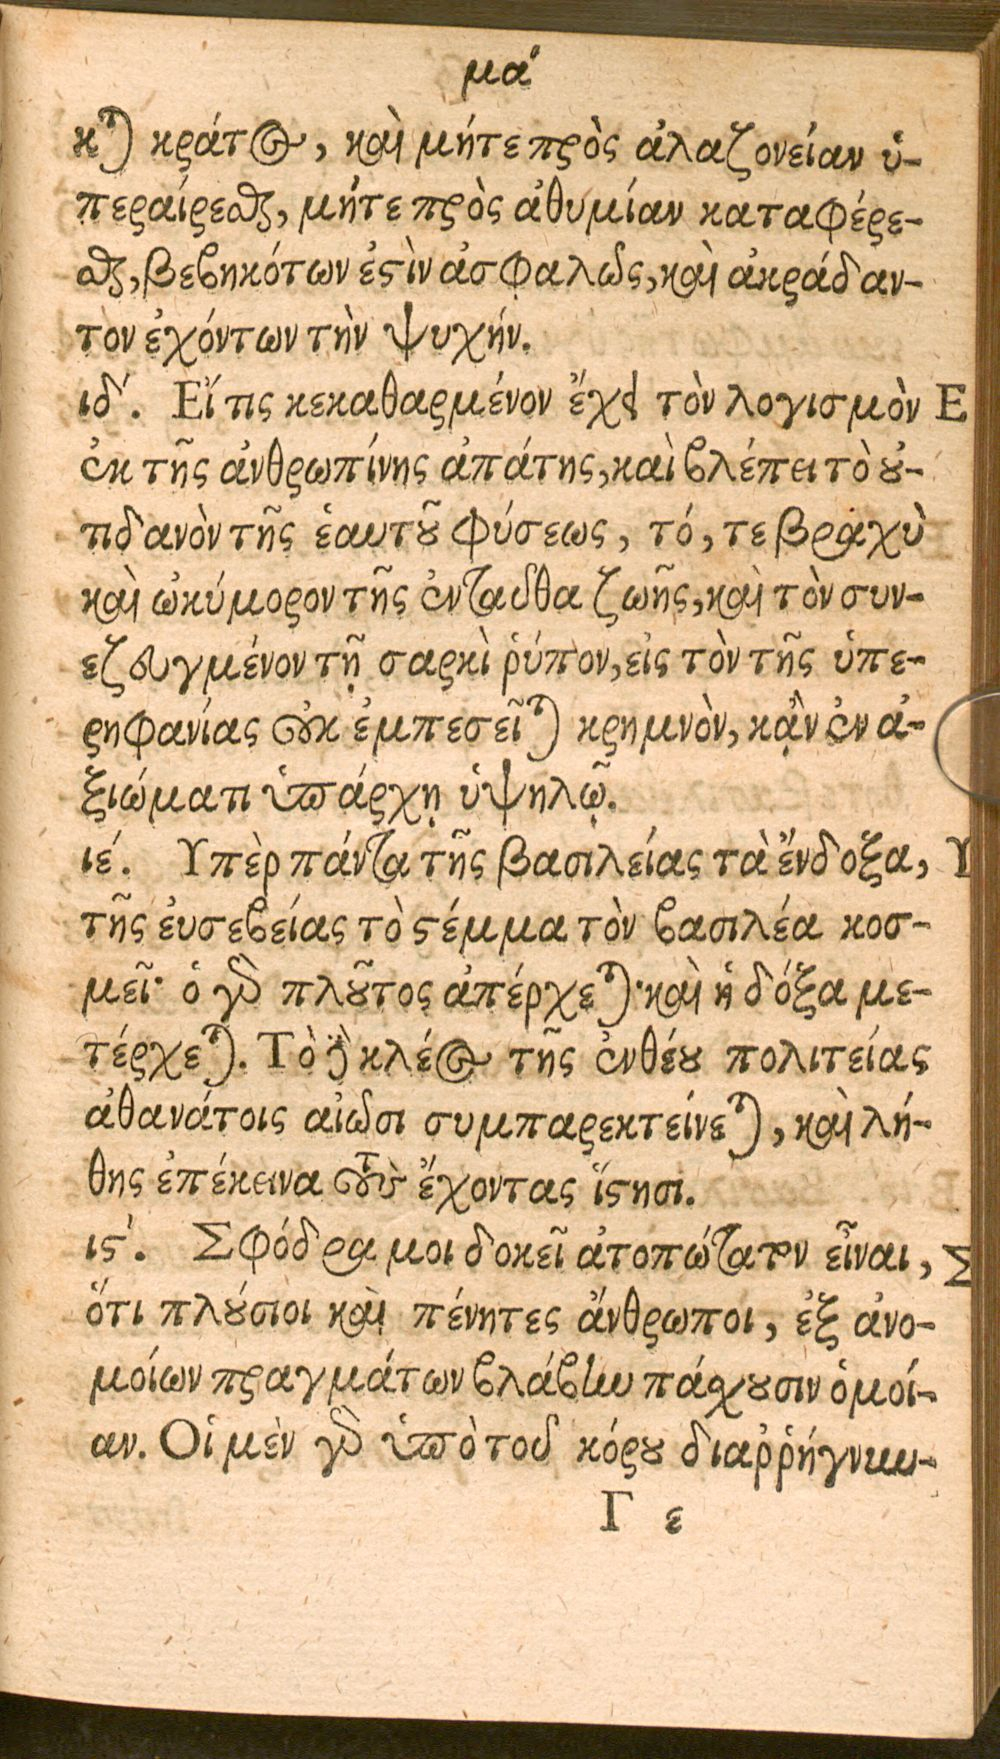 μα
κται κράτος, καὶ μήτε πρὸς ἀλαζονείαν ὑ-
περαίρεσθαι, μήτε πρὸς ἀθυμίαν καταφέρε-
σθαι, βεβηκότων ἐστὶν ἀσφαλῶς, καὶ ἀκράδαν-
τον ἐχόντων τὴν ψυχήν.
ιδ´. Εἴ τις κεκαθαρμένον ἔχει τὸν λογισμὸν Ε
ἐκ τῆς ἀνθρωπίνης ἀπάτης, καὶ βλέπει τὸ οὐ-
τιδανὸν τῆς ἑαυτοῦ φύσεως, τό, τε βραχὺ
καὶ ὠκύμορον τῆς ἐνταῦθα ζωῆς, καὶ τὸν συν-
εζευγμένον τῇ σαρκὶ ῥύπον, εἰς τὸν τῆς ὑπε-
ρηφανίας οὐκ ἐμπεσεῖται κρημνὸν, κᾂν ἐν ἀ-
ξιώματι ὑπάρχῃ ὑψηλῷ.
ιέ. Υπὲρ πάντα τῆς βασιλείας τὰ ἔνδοξα, Υ
τῆς ἐυσεβείας τὸ στέμμα τὸν βασιλέα κοσ-
μεῖ· ὁ γὰρ πλοῦτος ἀπέρχεται· καὶ ἡ δόξα με-
τέρχεται. Τὸ δὲ κλέος τῆς ἐνθέου πολιτείας
ἀθανάτοις αἰῶσι συμπαρεκτείνεται, καὶ λή-
θης ἐπέκεινα τοὺς ἔχοντας ἵστησι.
ιϛ´. Σφόδρα μοι δοκεῖ ἀτοπώτατον εἶναι, Σ
ὅτι πλούσιοι καὶ πένητες ἄνθρωποι, ἐξ ἀνο-
μοίων πραγμάτων βλάβην πάσχουσιν ὁμοί-
αν. Οἱ μὲν γὰρ ὑπὸ τοῦ κόρου διαῤῥήγνυν-
Γ ε